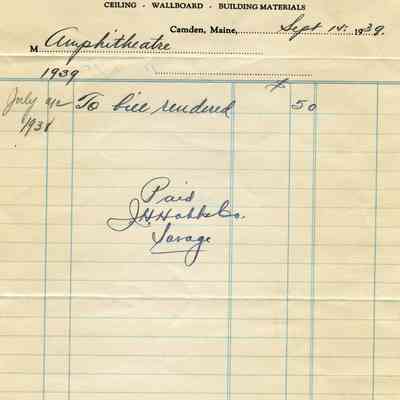 CEILING - WALLBOARD - BUILDING MATERIALS
Camden, Maine, Sept 14 1939.
M Amphitheatre
1939
July
1931
To bill rendered $ 50
Paid
J H Hobbs Co.
Savage